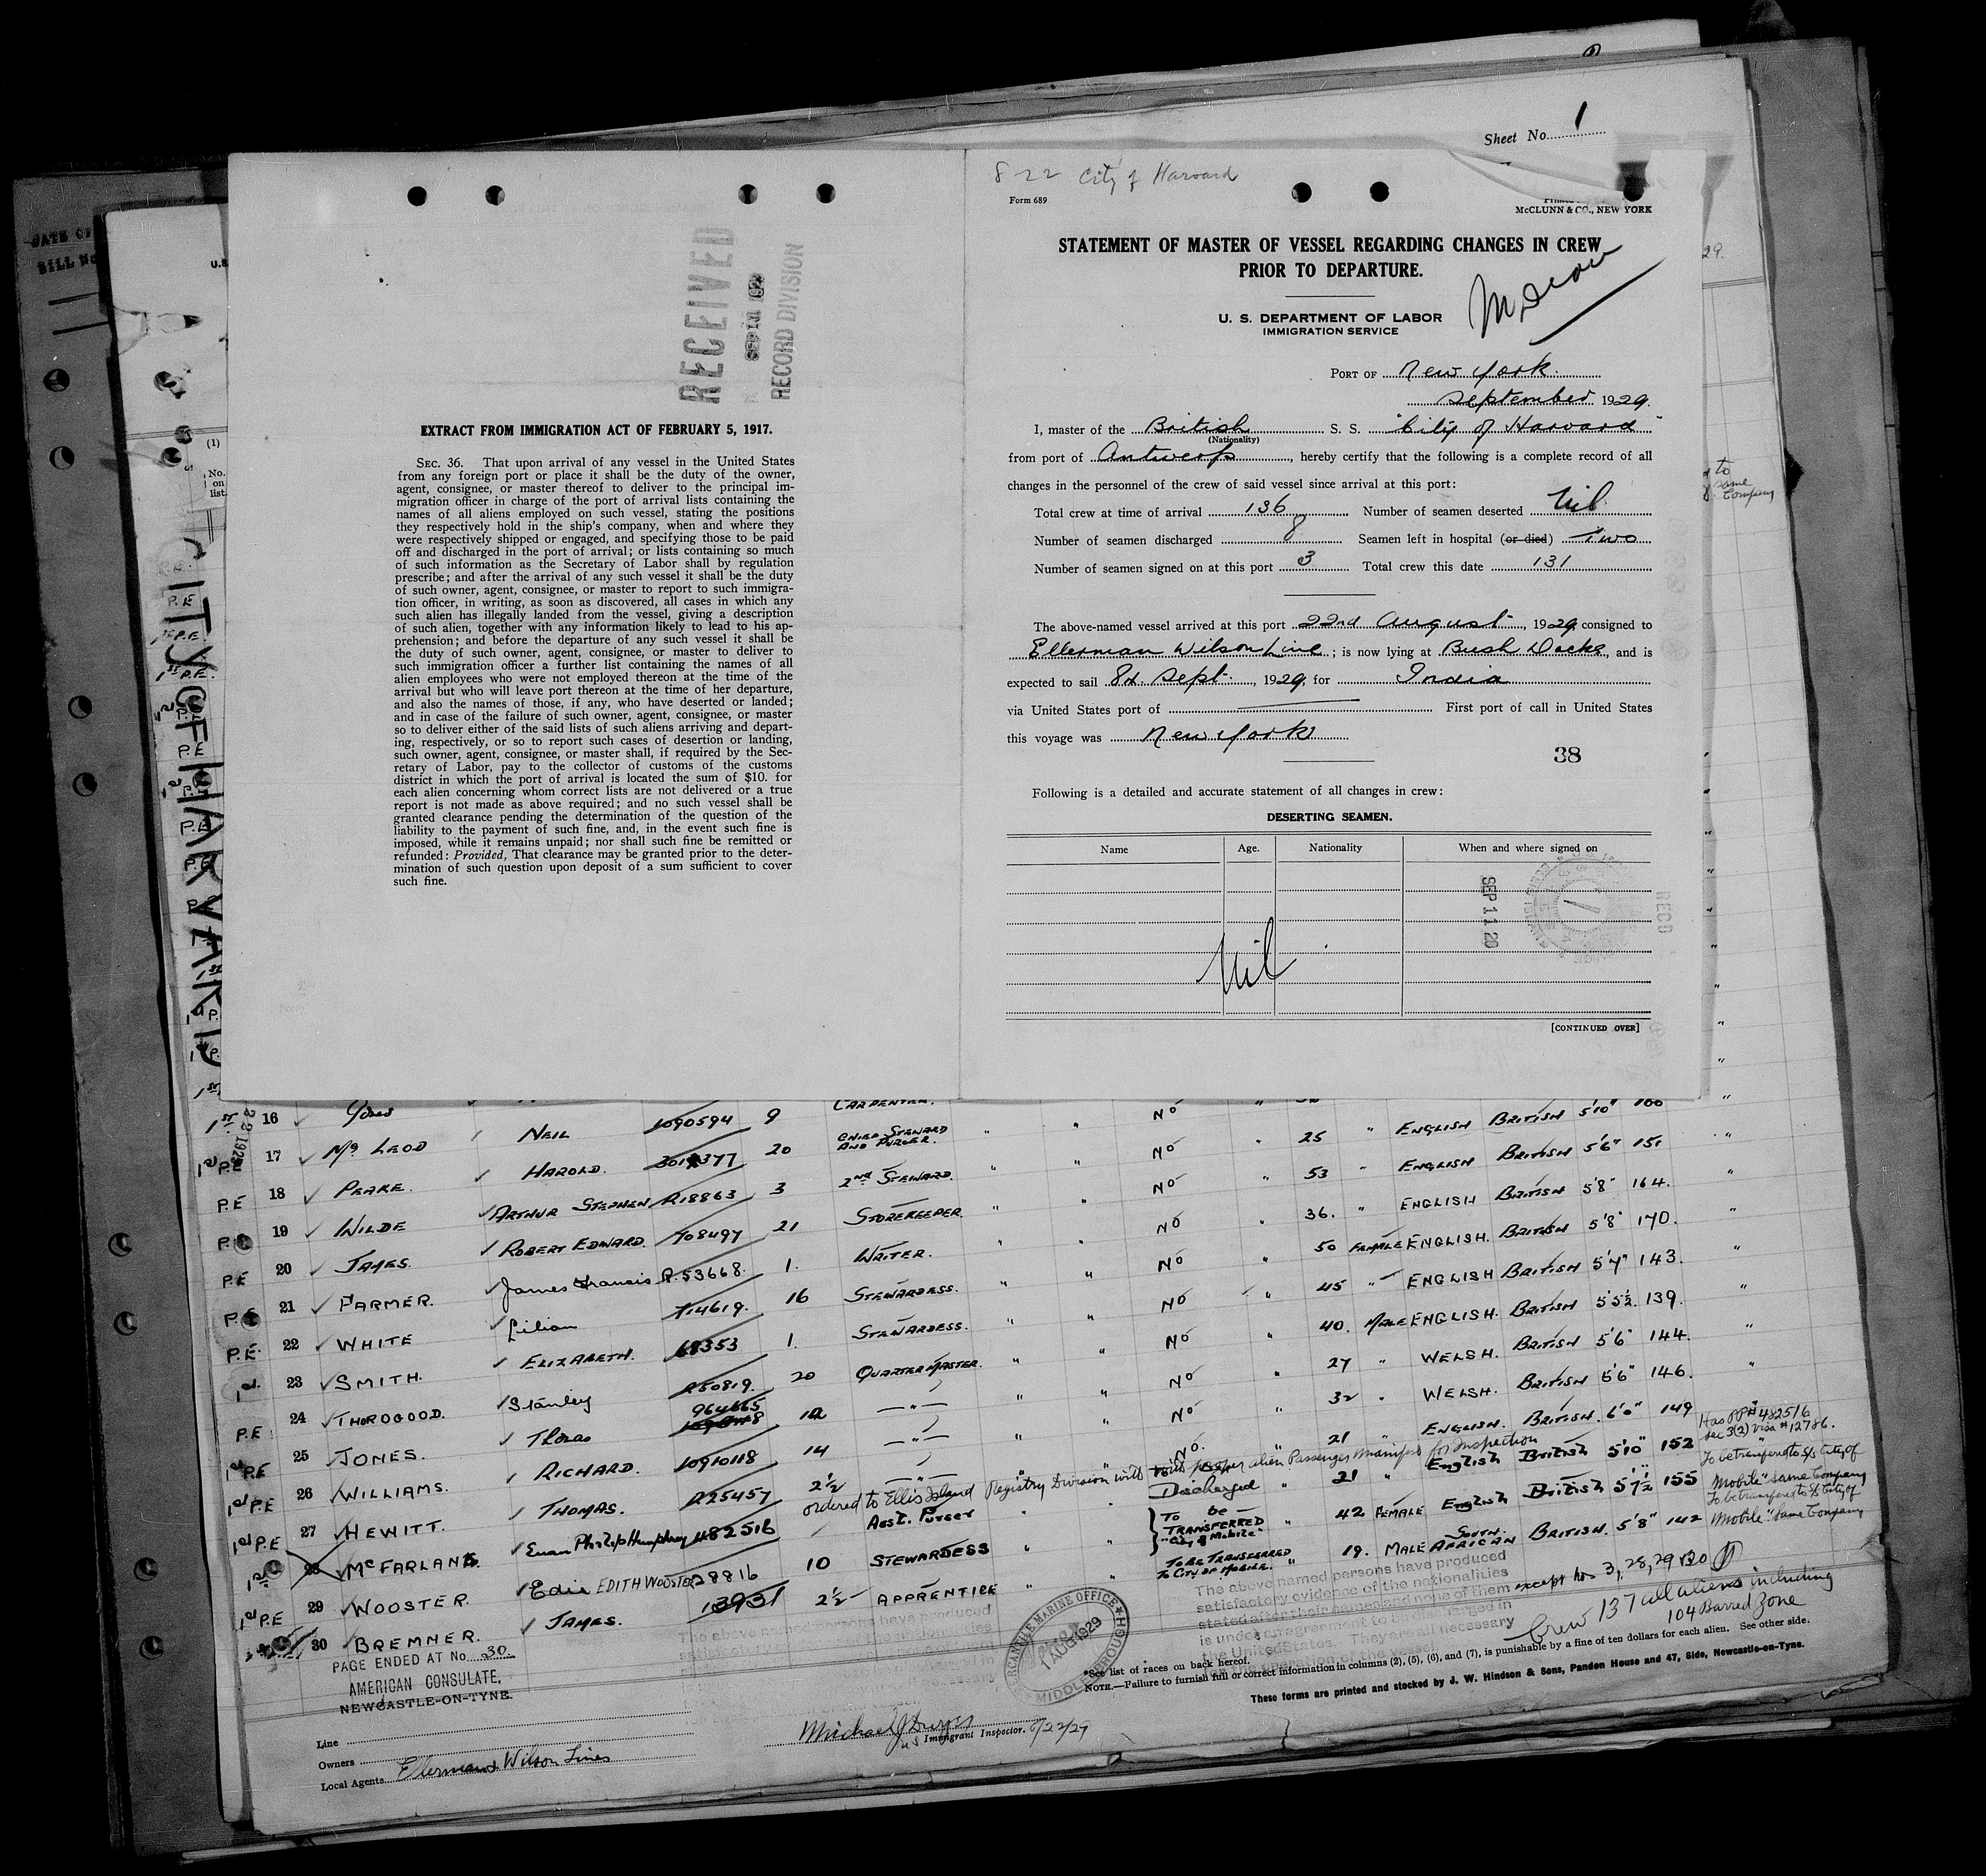 Sheet No. 1
8-22 City of Harvard
Form 689
McCLUNN & CO., NEW YORK
STATEMENT OF MASTER OF VESSEL REGARDING CHANGES IN CREW
PRIOR TO DEPARTURE.
U. S. DEPARTMENT OF LABOR
IMMIGRATION SERVICE
PORT OF New York.
September 1929.
I, master of the British S. S. "City of Harvard"
(Nationality)
from port of Antwerp, hereby certify that the following is a complete record of all
changes in the personnel of the crew of said vessel since arrival at this port:
Total crew at time of arrival 136 Number of seamen deserted Nil
Number of seamen discharged 8 Seamen left in hospital (or died) Two
Number of seamen signed on at this port 3 Total crew this date 131
The above-named vessel arrived at this port 22nd August, 1929, consigned to
Ellerman Wilson Line; is now lying at Bush Docks, and is
expected to sail 8th Sept., 1929, for India
via United States port of First port of call in United States
this voyage was New York
38
Following is a detailed and accurate statement of all changes in crew:
DESERTING SEAMEN.
Name Age. Nationality When and where signed on
SEP 11 29
RECD
Nil
[CONTINUED OVER]
RECEIVED
RECORD DIVISION
EXTRACT FROM IMMIGRATION ACT OF FEBRUARY 5, 1917.
SEC. 36. That upon arrival of any vessel in the United States
from any foreign port or place it shall be the duty of the owner,
agent, consignee, or master thereof to deliver to the principal im-
migration officer in charge of the port of arrival lists containing the
names of all aliens employed on such vessel, stating the positions
they respectively hold in the ship's company, when and where they
were respectively shipped or engaged, and specifying those to be paid
off and discharged in the port of arrival; or lists containing so much
of such information as the Secretary of Labor shall by regulation
prescribe; and after the arrival of any such vessel it shall be the duty
of such owner, agent, consignee, or master to report to such immigra-
tion officer, in writing, as soon as discovered, all cases in which any
such alien has illegally landed from the vessel, giving a description
of such alien, together with any information likely to lead to his ap-
prehension; and before the departure of any such vessel it shall be
the duty of such owner, agent, consignee, or master to deliver to
such immigration officer a further list containing the names of all
alien employees who were not employed thereon at the time of the
arrival but who will leave port thereon at the time of her departure,
and also the names of those, if any, who have deserted or landed;
and in case of the failure of such owner, agent, consignee, or master
so to deliver either of the said lists of such aliens arriving and depart-
ing, respectively, or so to report such cases of desertion or landing,
such owner, agent, consignee, or master shall, if required by the Sec-
retary of Labor, pay to the collector of customs of the customs
district in which the port of arrival is located the sum of $10. for
each alien concerning whom correct lists are not delivered or a true
report is not made as above required; and no such vessel shall be
granted clearance pending the determination of the question of the
liability to the payment of such fine, and, in the event such fine is
imposed, while it remains unpaid; nor shall such fine be remitted or
refunded: Provided, That clearance may be granted prior to the deter-
mination of such question upon deposit of a sum sufficient to cover
such fine.
CITY OF HARVARD
16 CARPENTER.
17 Mc LEOD NEIL 1090594 9 CHIEF STEWARD AND PURSER. NO 25 " ENGLISH BRITISH 5'10"
18 PEAKE. HAROLD. 20 2nd STEWARD. NO 53 " ENGLISH BRITISH 5'6" 151
19 WILDE ARTHUR STEPHEN R18863 3 STOREKEEPER. NO 36. " ENGLISH BRITISH 5'8" 164.
20 JAMES. ROBERT EDWARD. 708497 21 WRITER. NO 50 FEMALE ENGLISH. BRITISH 5'8" 170.
21 FARMER. James Francis R.53668. 1. STEWARDESS. NO 45 " ENGLISH BRITISH 5'4" 143.
22 WHITE Lilian 714619. 16 STEWARDESS. NO 40. MALE ENGLISH. BRITISH 5'5½ 139.
23 SMITH. ELIZABETH. 68353 1. QUARTERMASTER. NO 27 " WELSH. BRITISH 5'6" 144.
24 THOROGOOD. Stanley R50819. 20 NO 32 " WELSH. BRITISH 5'6" 146.
25 JONES. Thomas 964665 12 NO. 21 " ENGLISH. BRITISH. 6'0" 149
26 WILLIAMS. RICHARD. 10910118 14
Has PP# 482516
Sec 3(2) Visa #12786.
27 HEWITT. THOMAS. R25457 2½
ordered to Ellis Island Registry Division with proper alien Passenger Manifest for Inspection
28 McFARLAN Euan Philip Humphrey 482516 Asst. Purser Discharged 21 " English British 5'10" 152
To be transfered to S/S City of Mobile" Same Company
29 WOOSTER. Edie EDITH WOOSTER 28816 10 STEWARDESS TO BE TRANSFERRED "City of Mobile" 42 FEMALE English British 5'7½ 155
To be transfered to S/S City of Mobile" Same Company
30 BREMNER. JAMES. 13931 2½ APPRENTICE TO BE TRANSFERRED TO CITY OF MOBILE. 19. MALE SOUTH AFRICAN BRITISH. 5'8" 142
PAGE ENDED AT No. 30
AMERICAN CONSULATE,
NEWCASTLE-ON-TYNE.
The above named persons have produced
satisfactory evidence of the nationalities
stated after their names and none of them except no 3, 28, 29 & 30
is under an agreement to be discharged in
the United States. They are all necessary
Crew 137 all aliens including
104 Barred Zone
MERCANTILE MARINE OFFICE
1 AUG 1929
MIDDLESBROUGH
*See list of races on back hereof.
NOTE.—Failure to furnish full or correct information in columns (2), (5), (6), and (7), is punishable by a fine of ten dollars for each alien. See other side.
These forms are printed and stocked by J. W. Hindson & Sons, Pandon House and 47, Side, Newcastle-on-Tyne.
Line
Owners
Local Agents Ellerman & Wilson Lines
US Immigrant Inspector. 8/22/29